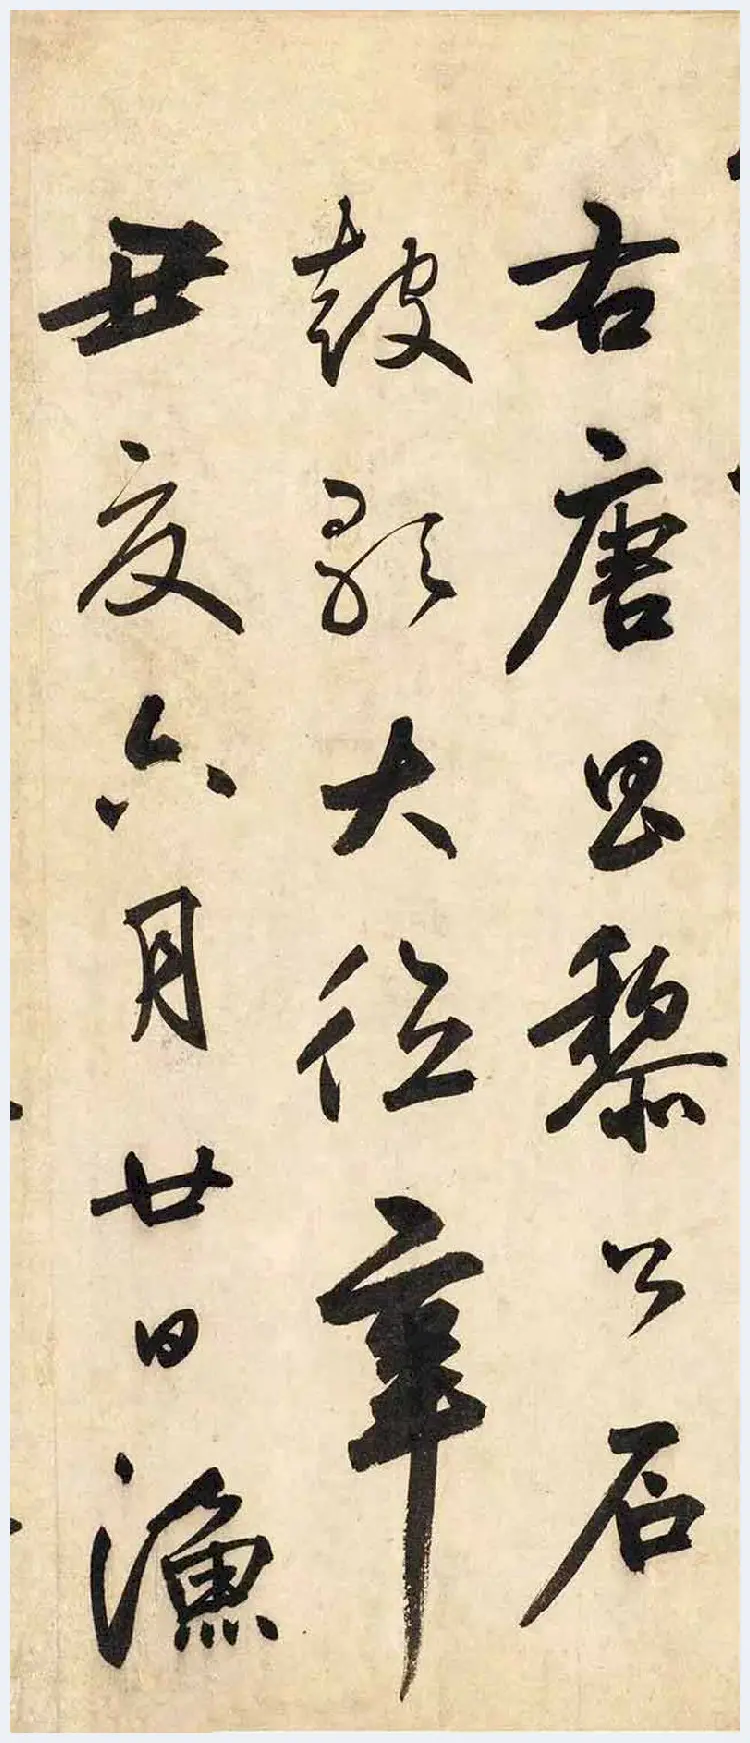 右唐昌黎公石
鼓歌大德辛
丑夏六月廿日漁